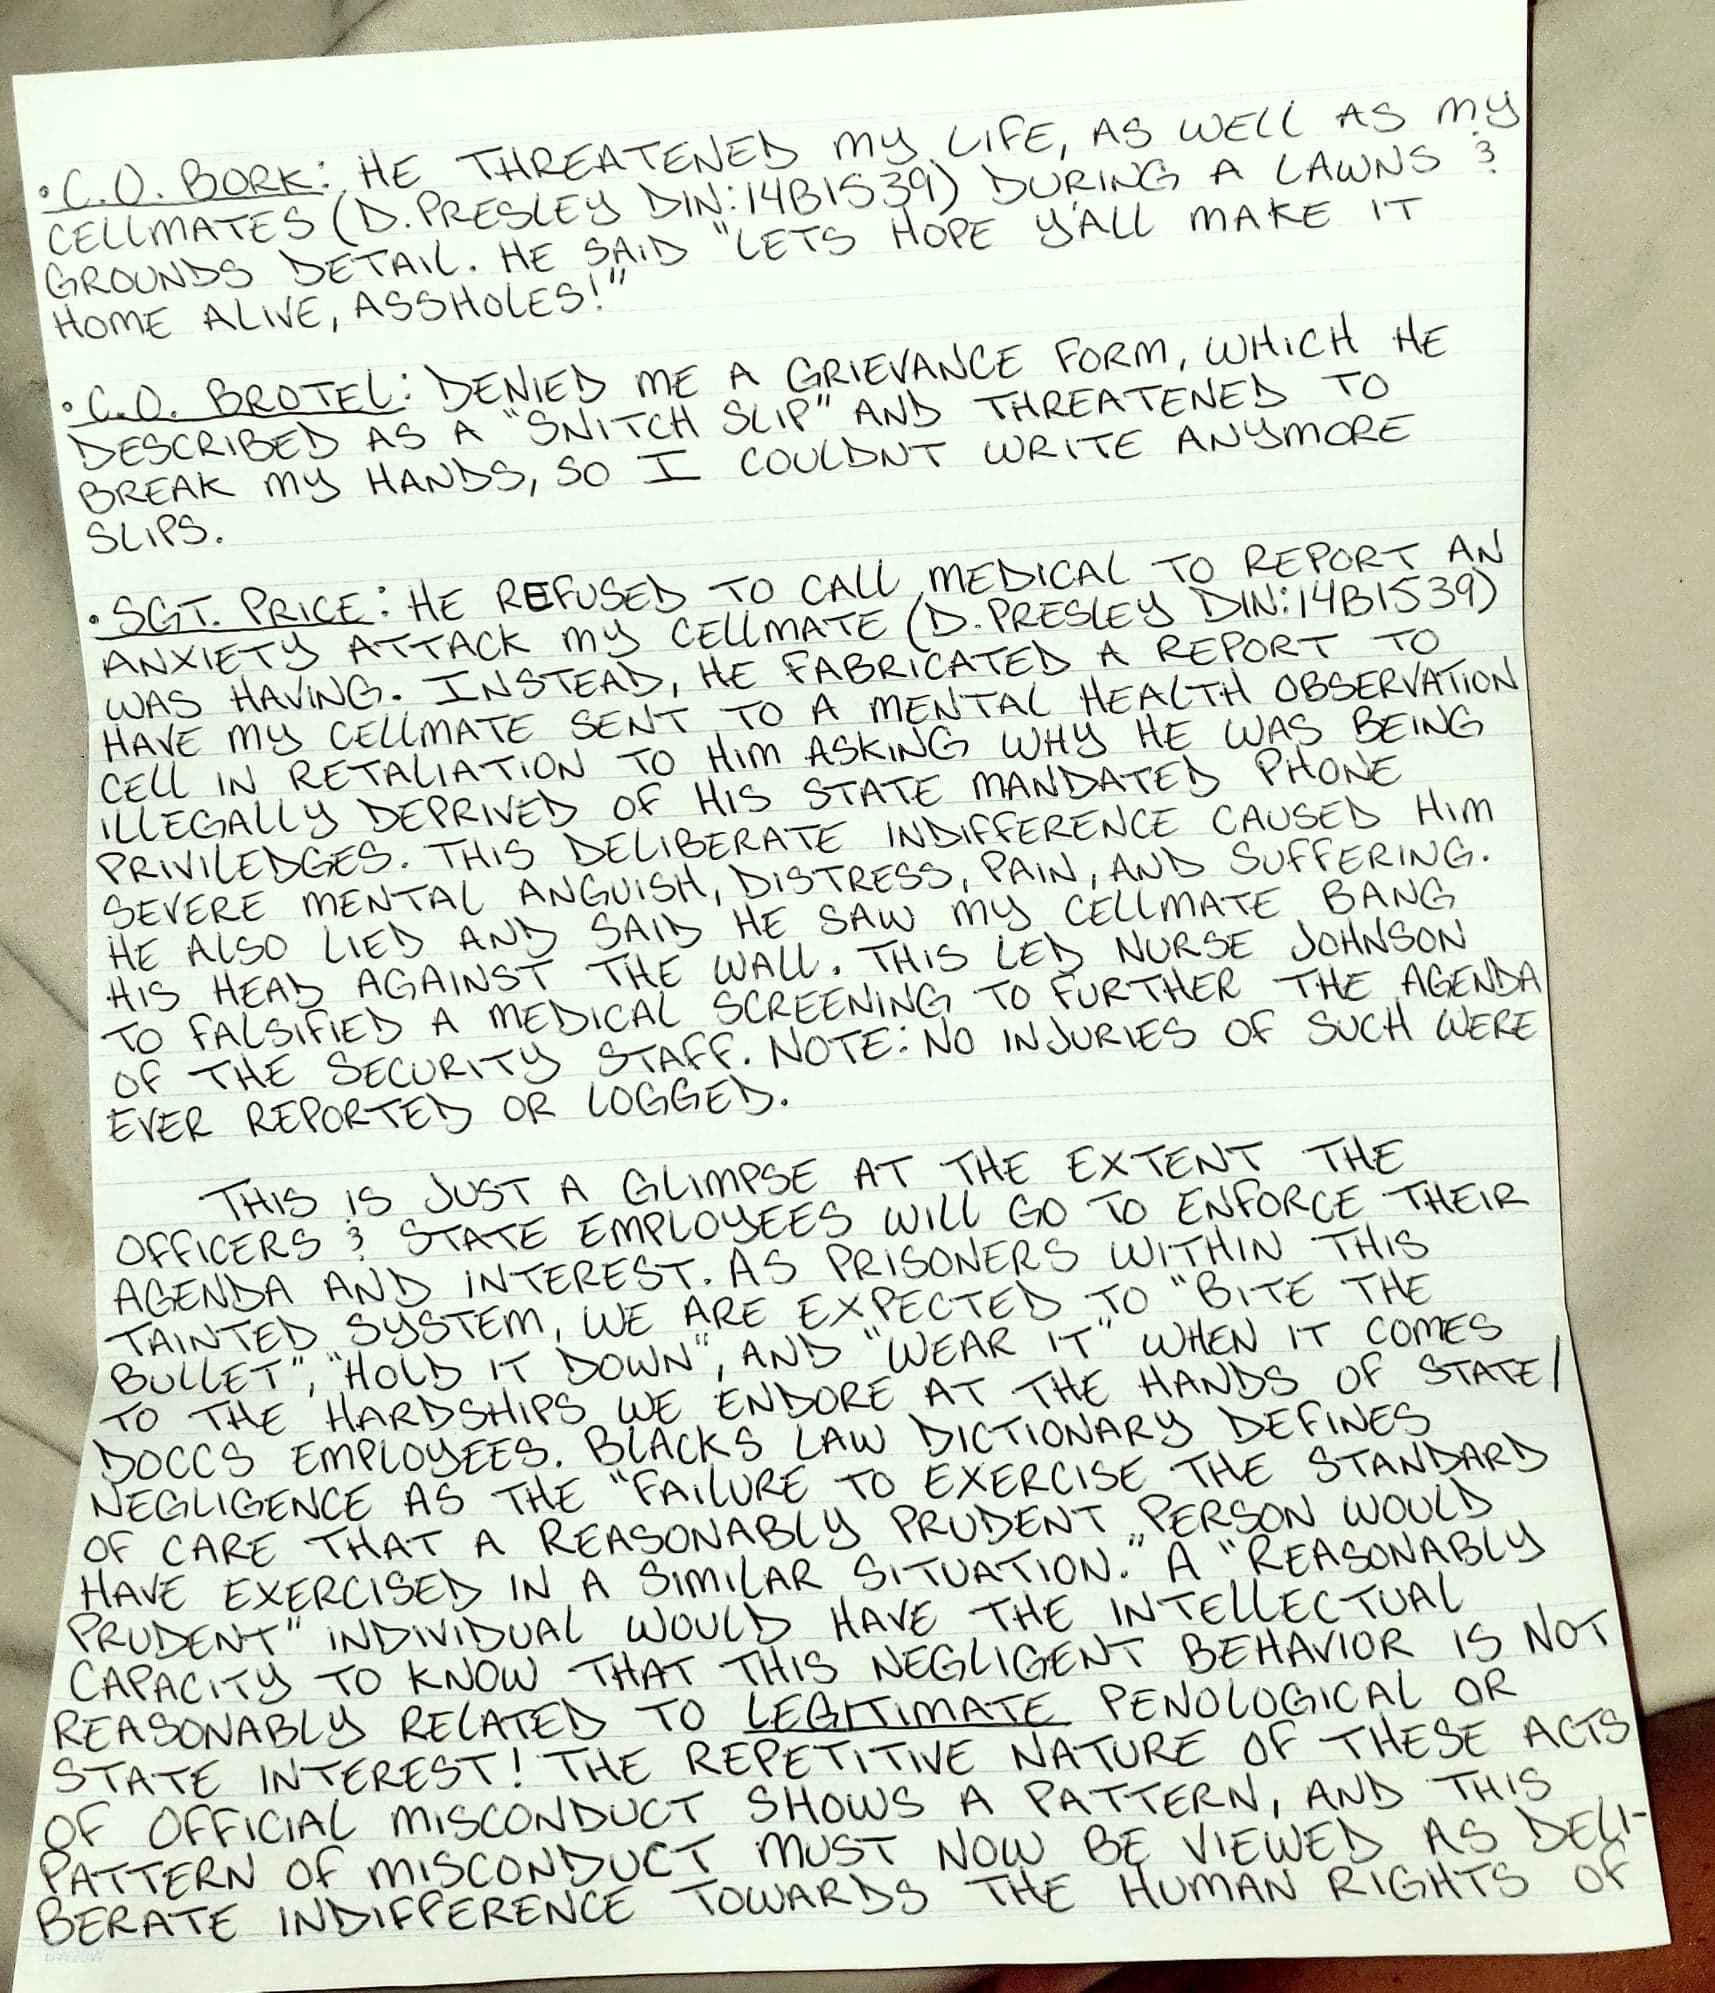 • C.O. BORK: HE THREATENED MY LIFE, AS WELL AS MY
CELLMATES (D. PRESLEY DIN: 14B1539) DURING A LAWNS &
GROUNDS DETAIL. HE SAID "LETS HOPE Y'ALL MAKE IT
HOME ALIVE, ASSHOLES!"
• C.O. BROTEL: DENIED ME A GRIEVANCE FORM, WHICH HE
DESCRIBED AS A "SNITCH SLIP" AND THREATENED TO
BREAK MY HANDS, SO I COULDNT WRITE ANYMORE
SLIPS.
• SGT. PRICE: HE REFUSED TO CALL MEDICAL TO REPORT AN
ANXIETY ATTACK MY CELLMATE (D. PRESLEY DIN: 14B1539)
WAS HAVING. INSTEAD, HE FABRICATED A REPORT TO
HAVE MY CELLMATE SENT TO A MENTAL HEALTH OBSERVATION
CELL IN RETALIATION TO HIM ASKING WHY HE WAS BEING
ILLEGALLY DEPRIVED OF HIS STATE MANDATED PHONE
PRIVILEDGES. THIS DELIBERATE INDIFFERENCE CAUSED HIM
SEVERE MENTAL ANGUISH, DISTRESS, PAIN, AND SUFFERING.
HE ALSO LIED AND SAID HE SAW MY CELLMATE BANG
HIS HEAD AGAINST THE WALL. THIS LED NURSE JOHNSON
TO FALSIFIED A MEDICAL SCREENING TO FURTHER THE AGENDA
OF THE SECURITY STAFF. NOTE: NO INJURIES OF SUCH WERE
EVER REPORTED OR LOGGED.
THIS IS JUST A GLIMPSE AT THE EXTENT THE
OFFICERS & STATE EMPLOYEES WILL GO TO ENFORCE THEIR
AGENDA AND INTEREST. AS PRISONERS WITHIN THIS
TAINTED SYSTEM, WE ARE EXPECTED TO "BITE THE
BULLET", "HOLD IT DOWN", AND "WEAR IT" WHEN IT COMES
TO THE HARDSHIPS WE ENDORE AT THE HANDS OF STATE/
DOCCS EMPLOYEES. BLACKS LAW DICTIONARY DEFINES
NEGLIGENCE AS THE "FAILURE TO EXERCISE THE STANDARD
OF CARE THAT A REASONABLY PRUDENT PERSON WOULD
HAVE EXERCISED IN A SIMILAR SITUATION." A "REASONABLY
PRUDENT" INDIVIDUAL WOULD HAVE THE INTELLECTUAL
CAPACITY TO KNOW THAT THIS NEGLIGENT BEHAVIOR IS NOT
REASONABLY RELATED TO LEGITIMATE PENOLOGICAL OR
STATE INTEREST! THE REPETITIVE NATURE OF THESE ACTS
OF OFFICIAL MISCONDUCT SHOWS A PATTERN, AND THIS
PATTERN OF MISCONDUCT MUST NOW BE VIEWED AS DELI-
BERATE INDIFFERENCE TOWARDS THE HUMAN RIGHTS OF